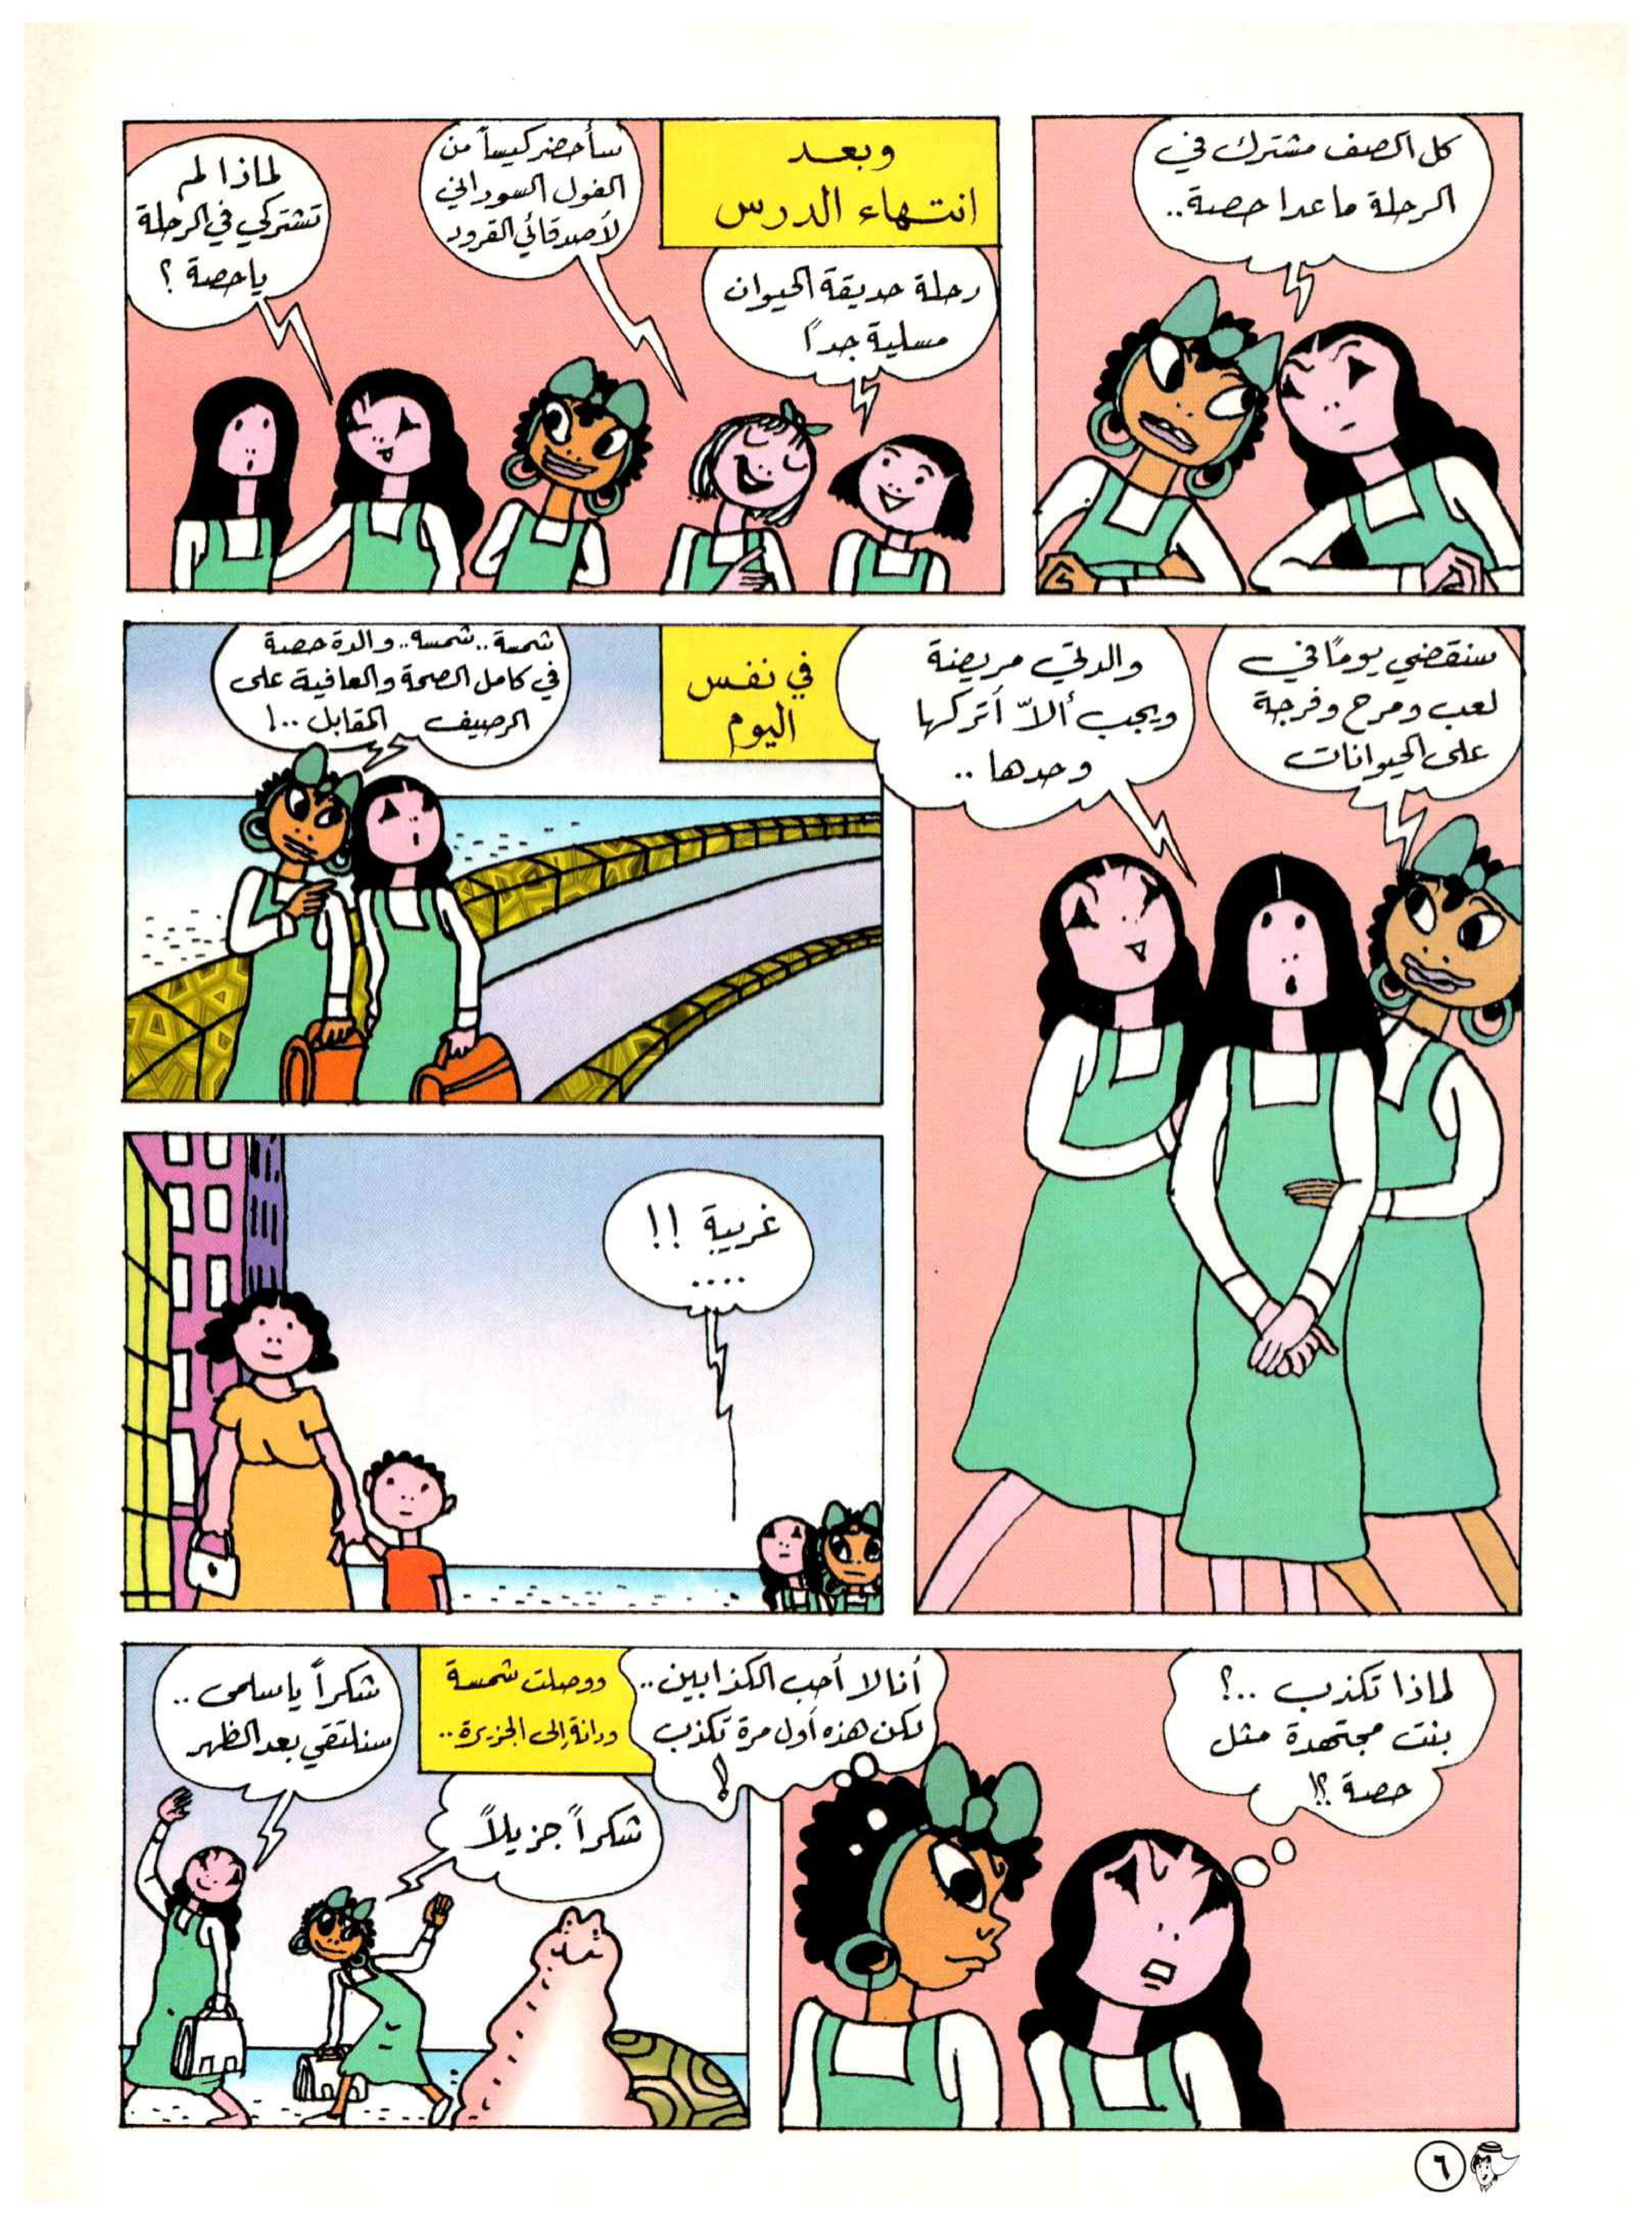 كل الصف مشترك في
الرحلة ما عدا حصة..
وبعد
انتهاء الدرس
رحلة حديقة الحيوان
مسلية جداً
سأحضر كيساً من
الفول السوداني
لأصدقائي القرود
لماذا لم
تشتركي في الرحلة
يا حصة ؟
سنقضي يومًا في
لعب ومرح وفرجة
على الحيوانات
والدتي مريضة
ويجب ألاّ أتركها
وحدها ..
في نفس
اليوم
شمسة.. شمسه.. والدة حصة
في كامل الصحة والعافية على
الرصيف المقابل ..!
غريبة !!
....
لماذا تكذب ..؟
بنت مجتهدة مثل
حصة ؟!
أنا لا أحب الكذابين..
لكن هذه أول مرة تكذب
!
ووصلت شمسة
ودانة إلى الجزيرة..
شكراً جزيلاً
شكراً يا سلمى ..
سنلتقي بعد الظهر
٦